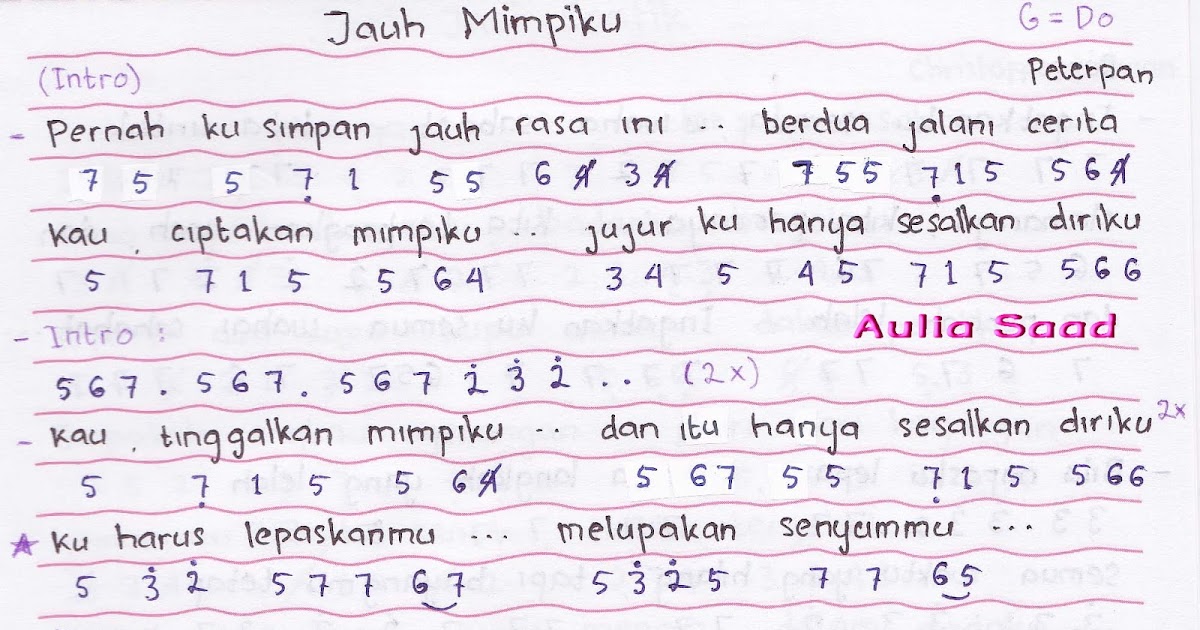 Jauh Mimpiku
G = Do
(Intro)
Peterpan
- Pernah ku simpan jauh rasa ini .. berdua jalani cerita
7 5 5 7̣ 1 5 5 6 4̸ 3 4̸ 7 5 5 7̣ 1 5 5 6 4̸
kau ciptakan mimpiku .. jujur ku hanya sesalkan diriku
5 7 1 5 5 6 4 3 4 5 4 5 7 1 5 5 6 6
Aulia Saad
- Intro :
5 6 7 . 5 6 7 . 5 6 7 2̇ 3̇ 2̇ . . (2x)
- kau tinggalkan mimpiku ... dan itu hanya sesalkan diriku 2x
5 7̣ 1 5 5 6 4̸ 5 6 7 5 5 7̣ 1 5 5 6 6
☆ ku harus lepaskanmu ... melupakan senyummu ...
5 3̇ 2̇ 5 7 7 6 7 5 3̇ 2̇ 5 7 7 6 5